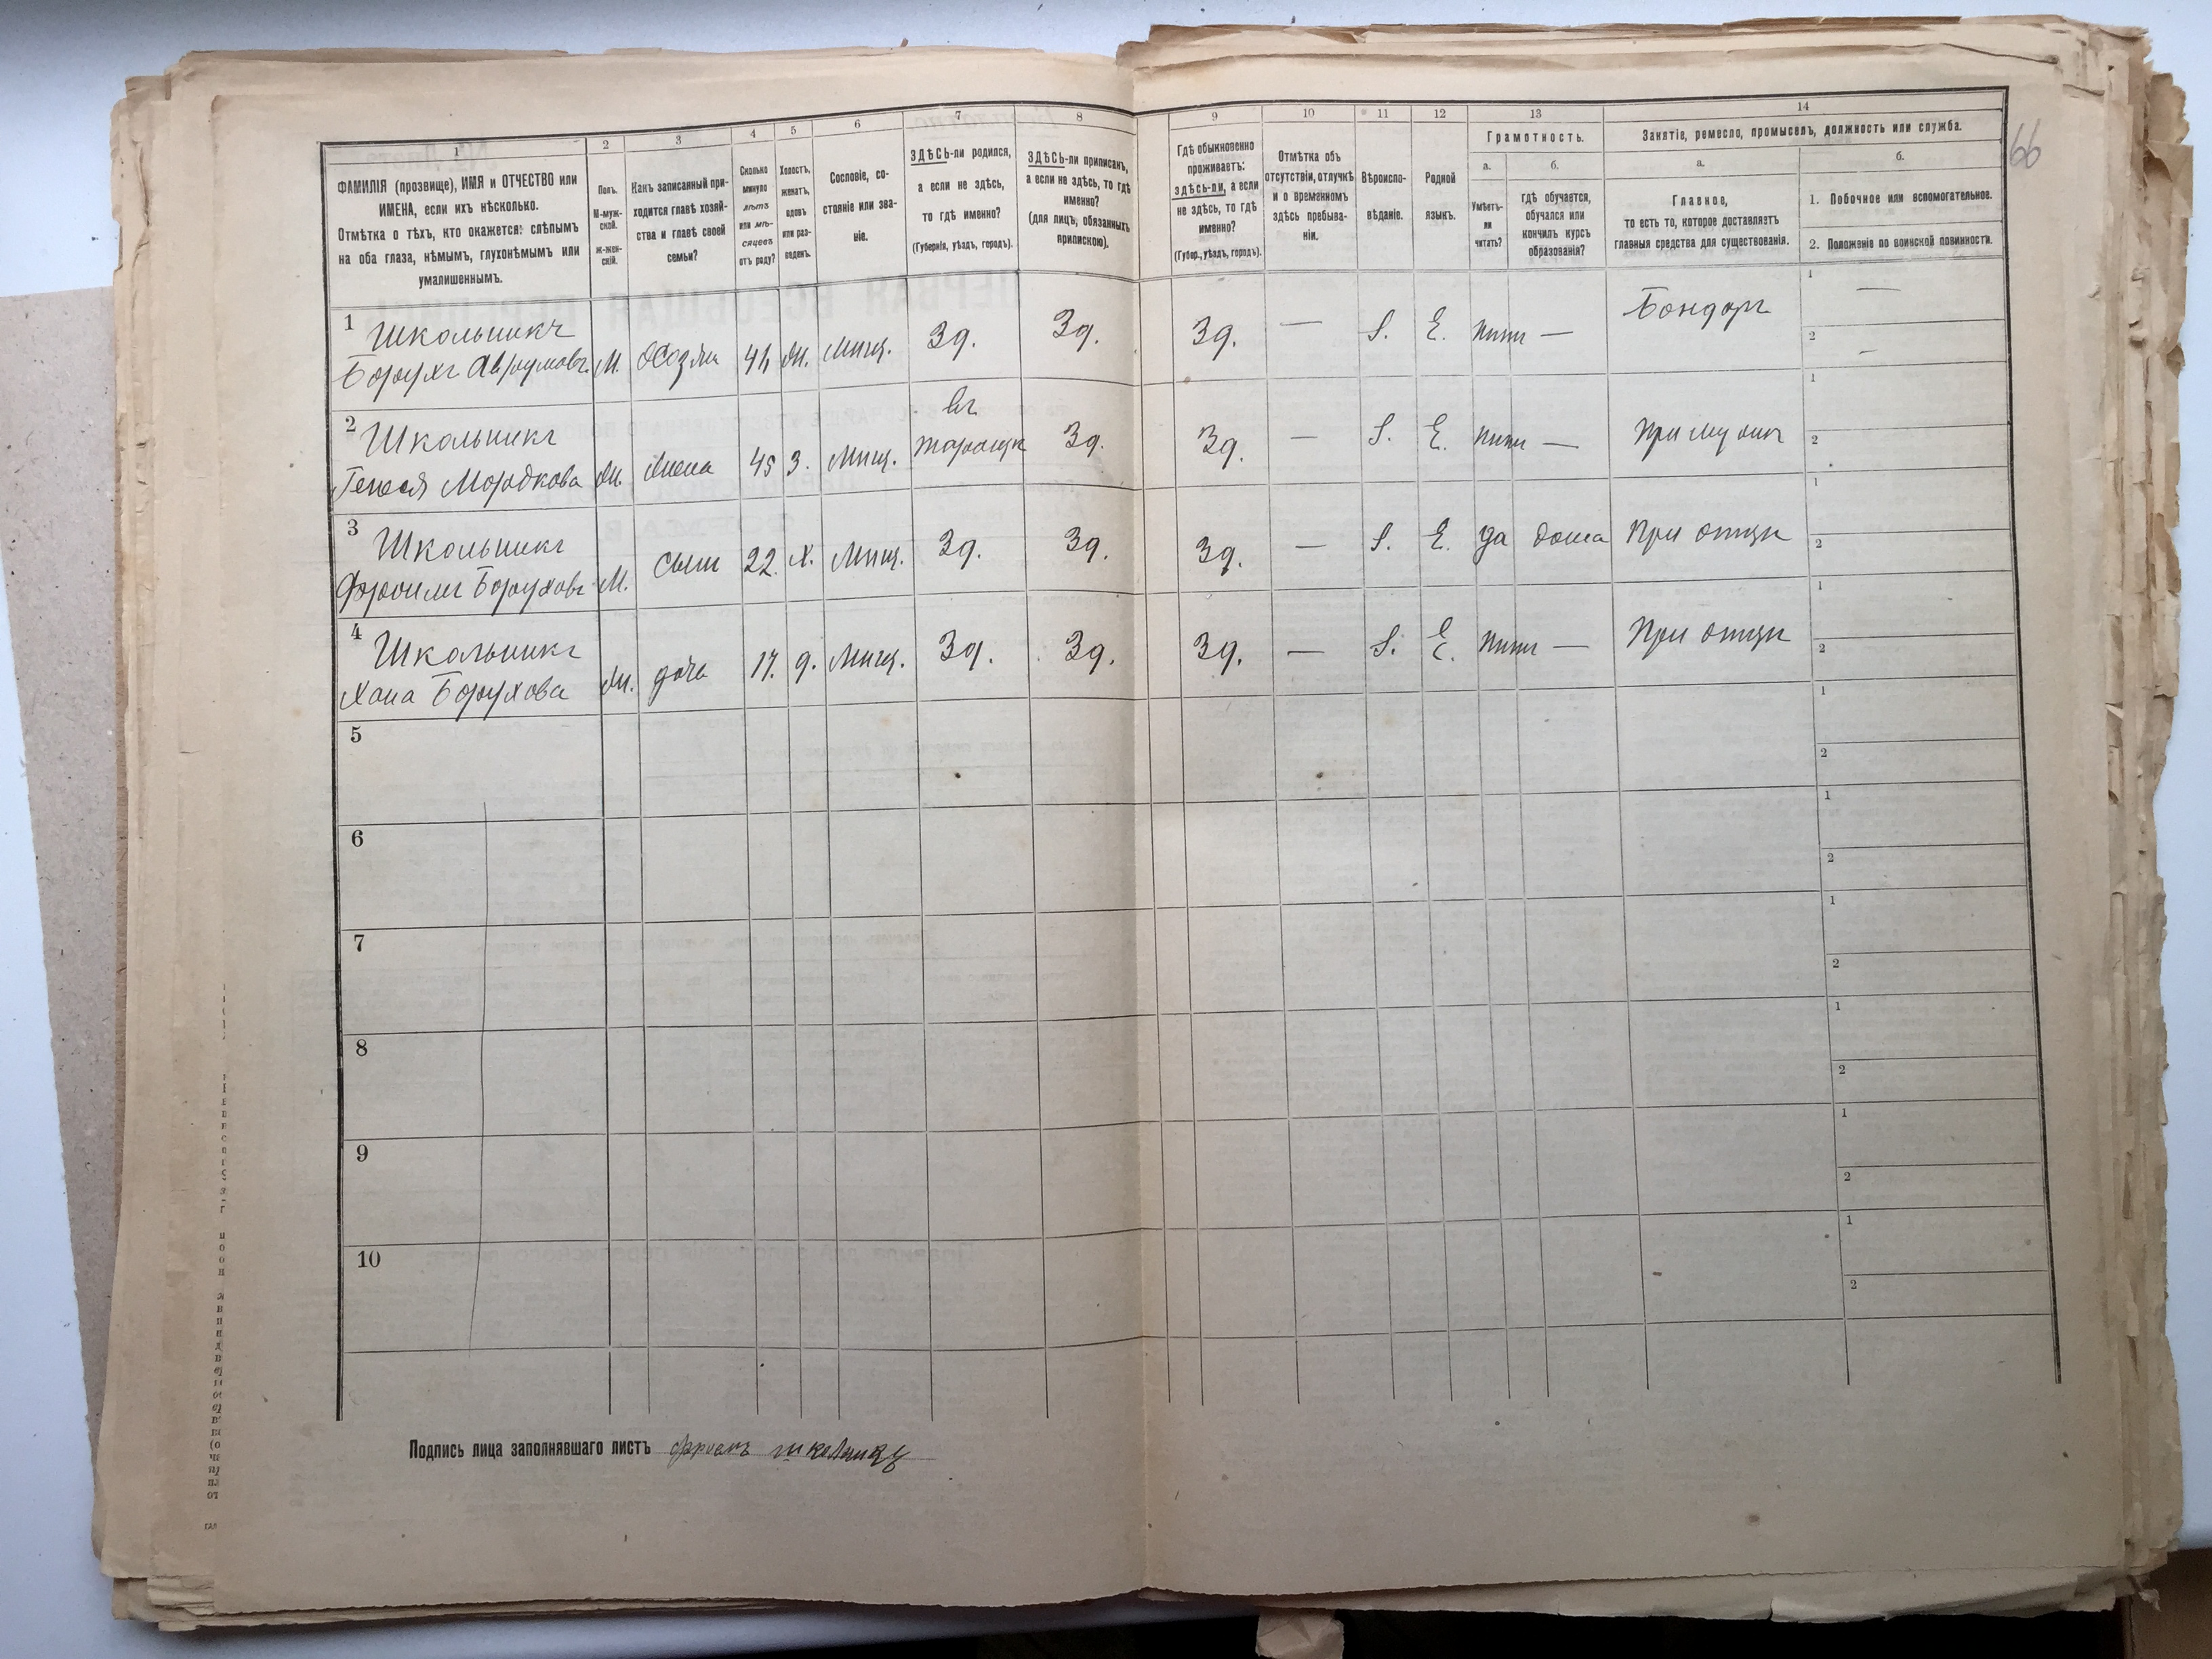 66
1 2 3 4 5 6 7 8 9 10 11 12 13 14
ФАМИЛІЯ (прозвище), ИМЯ и ОТЧЕСТВО или
ИМЕНА, если ихъ нѣсколько.
Отмѣтка о тѣхъ, кто окажется: слѣпымъ
на оба глаза, нѣмымъ, глухонѣмымъ или
умалишеннымъ.
Полъ.
М-муж-
ской.
Ж-жен-
скій.
Какъ записанный при-
ходится главѣ хозяй-
ства и главѣ своей
семьи?
Сколько
минуло
лѣтъ
или мѣ-
сяцевъ
отъ роду?
Холостъ,
женатъ,
вдовъ
или раз-
веденъ.
Сословіе, со-
стояніе или зва-
ніе.
ЗДѢСЬ-ли родился,
а если не здѣсь,
то гдѣ именно?
(Губернія, уѣздъ, городъ).
ЗДѢСЬ-ли приписанъ,
а если не здѣсь, то гдѣ
именно?
(для лицъ, обязанныхъ
припискою).
Гдѣ обыкновенно
проживаетъ:
здѣсь-ли, а если
не здѣсь, то гдѣ
именно?
(Губер., уѣздъ, городъ).
Отмѣтка объ
отсутствіи, отлучкѣ
и о временномъ
здѣсь пребыва-
ніи.
Вѣроиспо-
вѣданіе.
Родной
языкъ.
Грамотность.
а.
Умѣетъ-
ли
читать?
б.
гдѣ обучается,
обучался или
кончилъ курсъ
образованія?
Занятіе, ремесло, промыселъ, должность или служба.
а.
Главное,
то есть то, которое доставляетъ
главныя средства для существованія.
б.
1. Побочное или вспомогательное.
2. Положеніе по воинской повинности.
1 Школьникъ
Борухъ Аврумовъ М. Хозяин 44 Ж. Мищ. Зд. Зд. Зд. — І. Е. нит — Бондарь 1 — 2 —
2 Школьникъ
Генеся Мордкова Ж. Жена 45 З. Мищ. въ Таращи Зд. Зд. — І. Е. нит — При мужи 1 2
3 Школьникъ
Фроимъ Боруховъ М. сынъ 22. Х. Мищ. Зд. Зд. Зд. — І. Е. да дома При отци 1 2
4 Школьникъ
Хана Борухова Ж. доча 17. д. Мищ. Зд. Зд. Зд. — І. Е. нит — При отци 1 2
5 1 2
6 1 2
7 1 2
8 1 2
9 1 2
10 1 2
Подпись лица заполнявшаго листъ